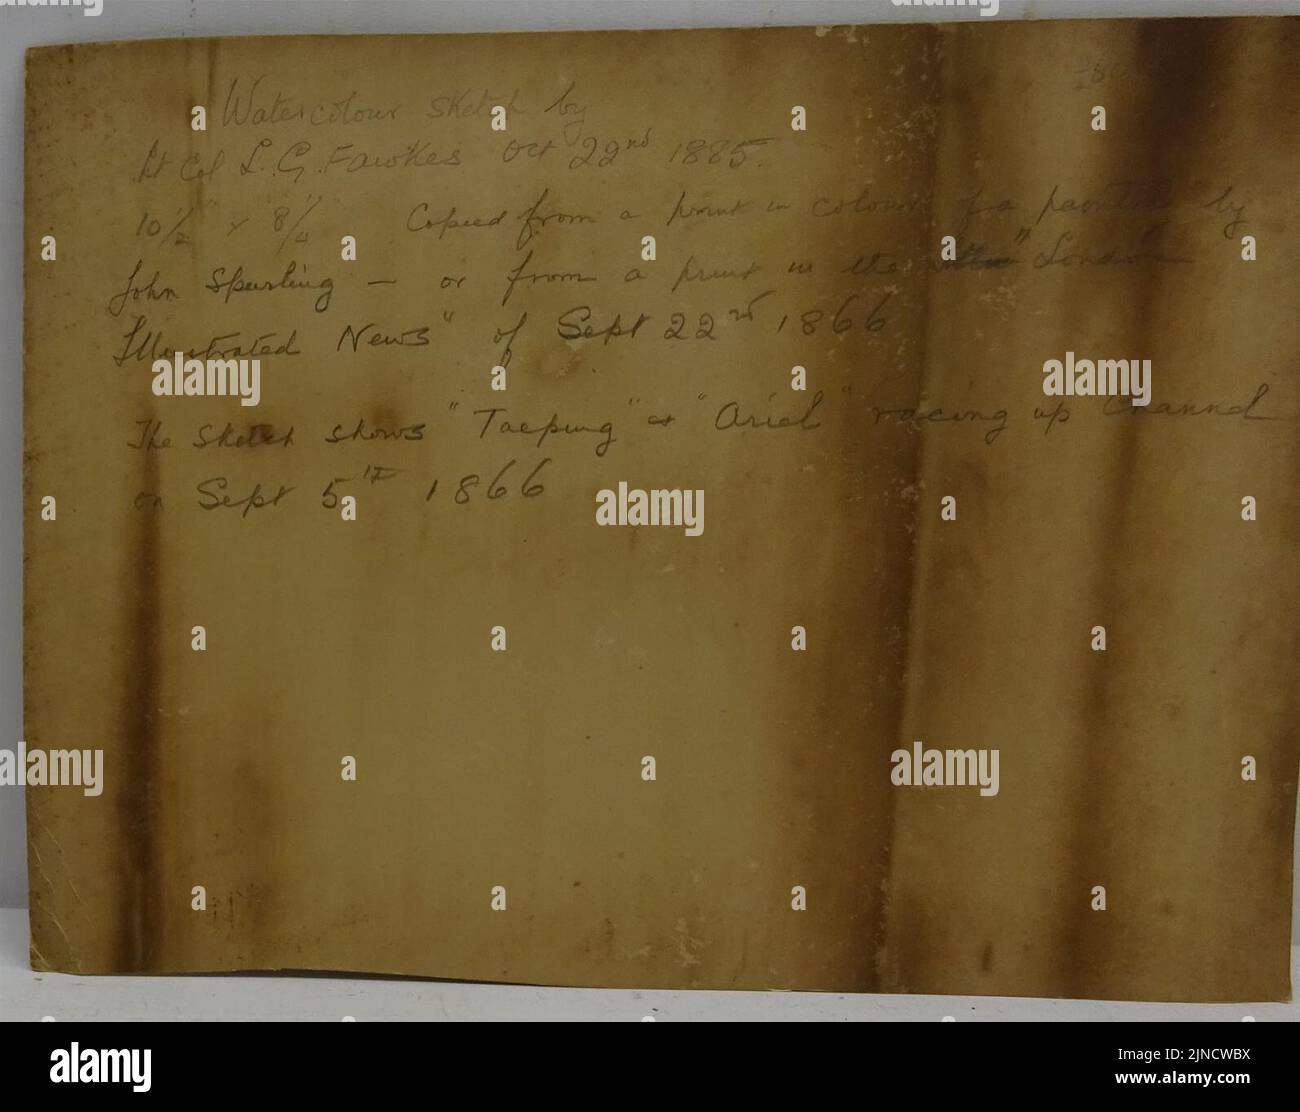 Watercolour sketch by
Lt Col L. G. Fawkes Oct 22nd 1885.
10 1/2" x 8 1/4" Copied from a print in colour of a painting by
John Spurling — or from a print in the "London
Illustrated News" of Sept 22nd 1866
The sketch shows "Taeping" & "Ariel" racing up Channel
on Sept 5th 1866
alamy
alamy
alamy
alamy
alamy
alamy
Image ID: 2JNCWBX
www.alamy.com